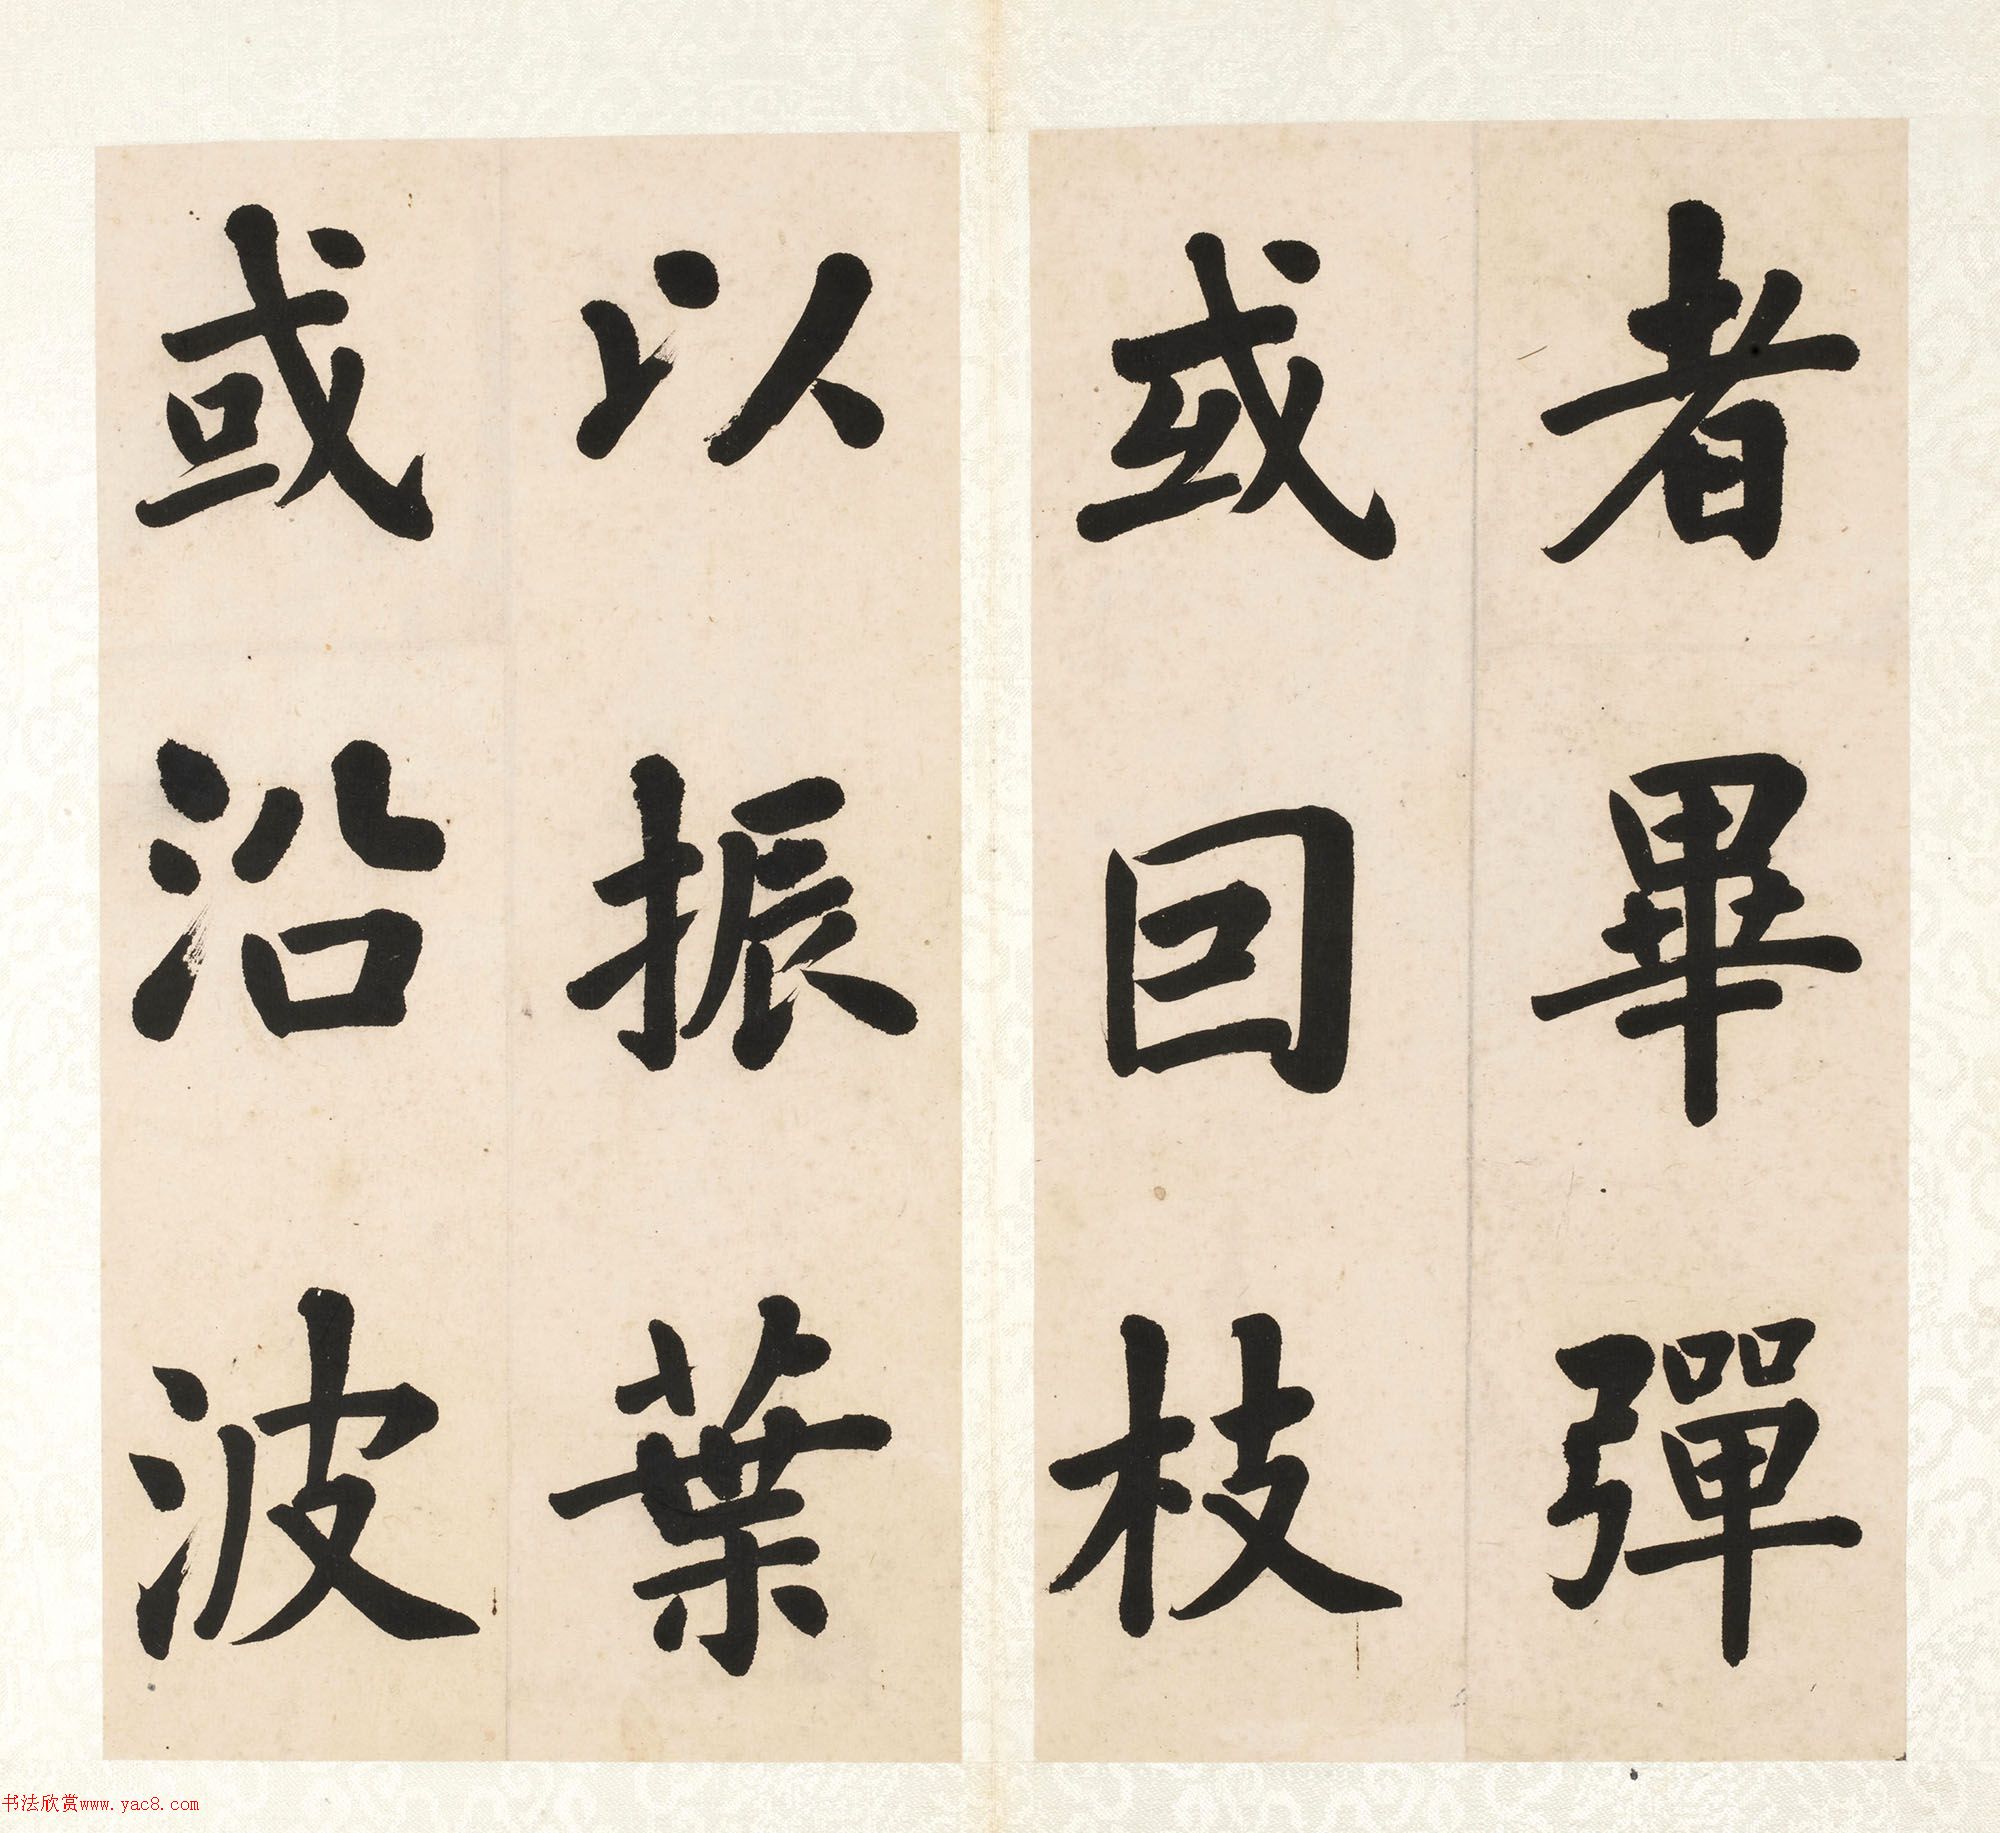 者畢彈
或因枝
以振葉
或沿波
书法欣赏www.yac8.com